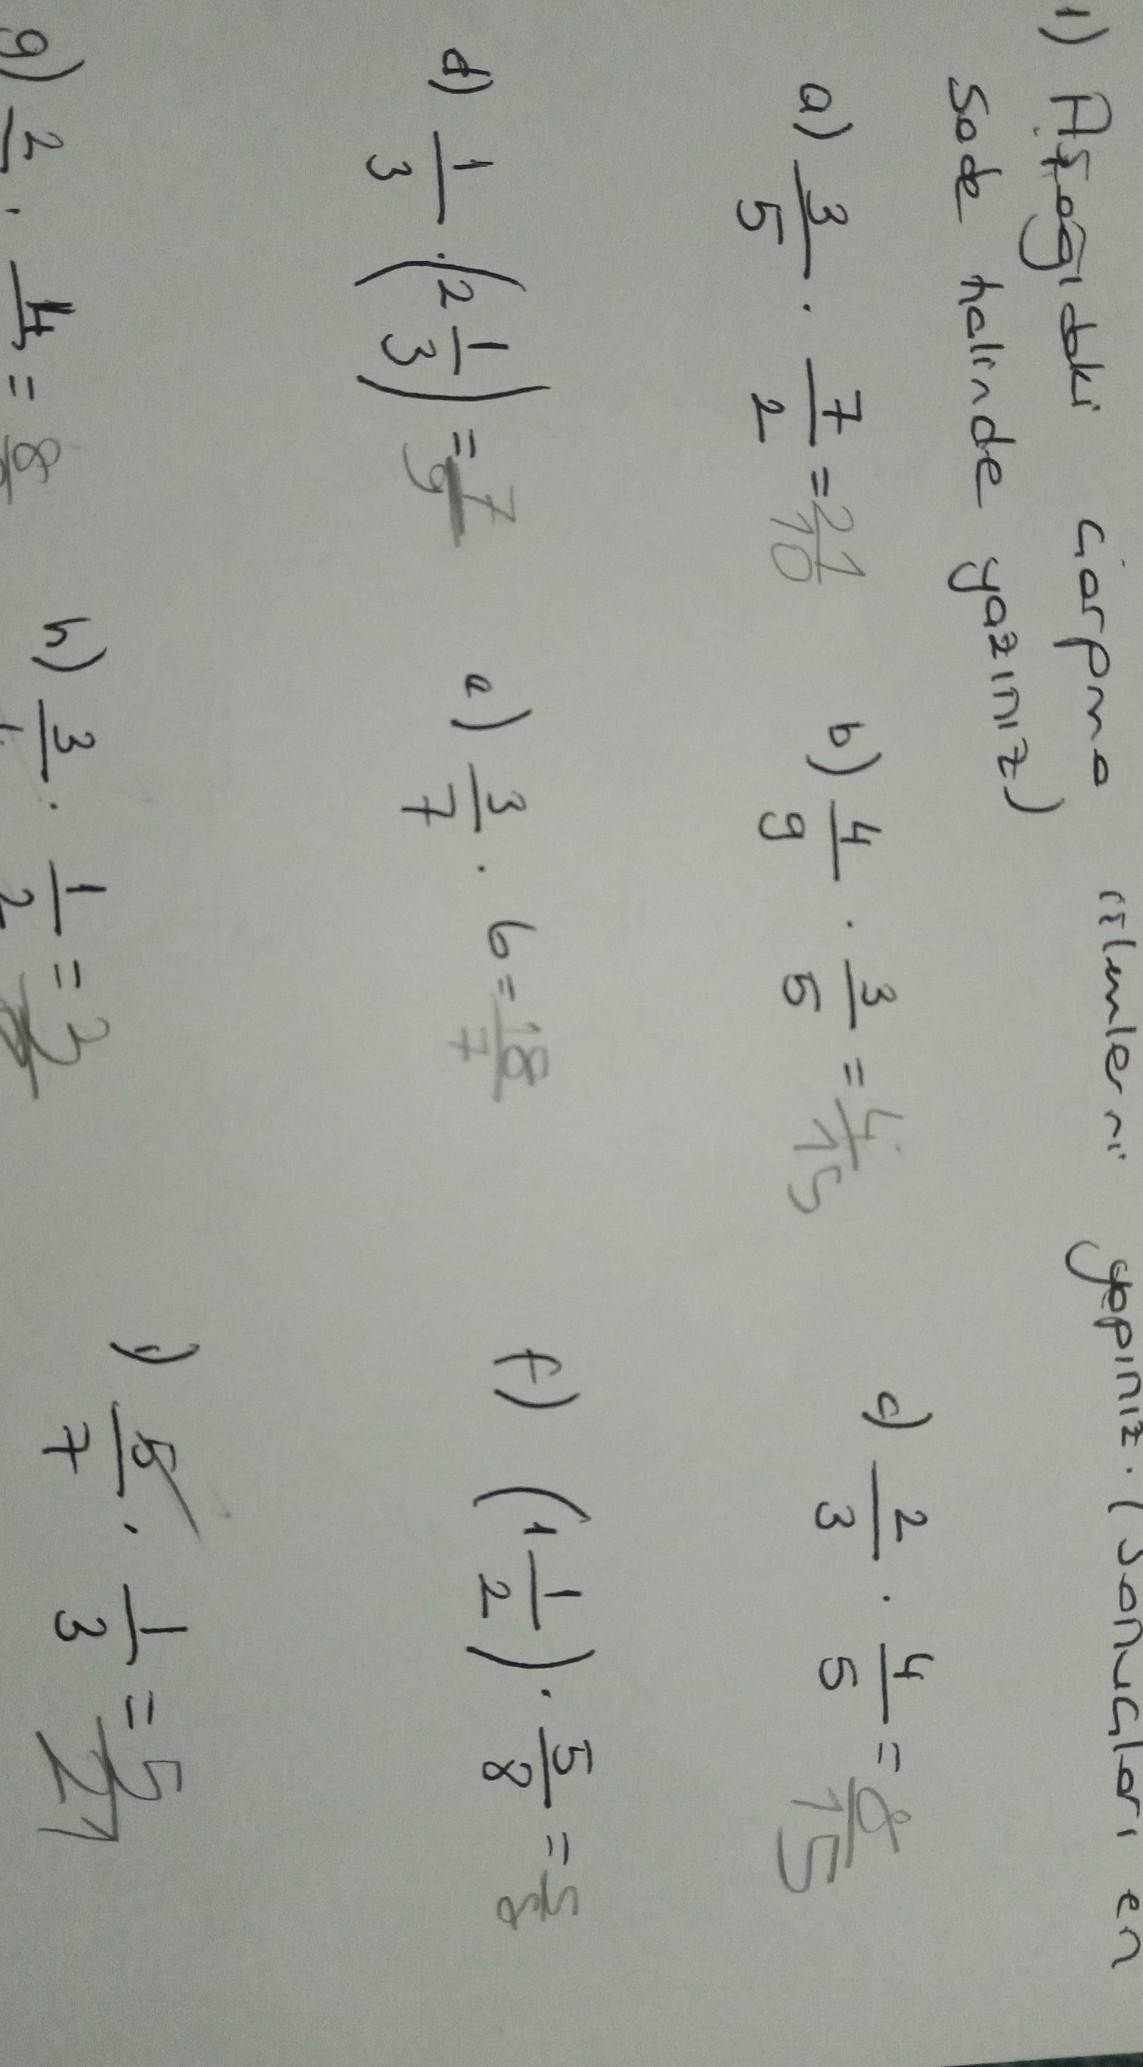 1) Aşağıdaki çarpma işlemlerni yapınız. (Sonuçları en
sade halinde yazınız)
a) 3/5 . 7/2 = 21/10 b) 4/9 . 3/5 = 4/15 c) 2/3 . 4/5 = 8/15
d) 1/3 . (2 1/3) = 7/9 e) 3/7 . 6 = 18/7 f) (1 1/2) . 5/8 = 5/8
g) 2 . 4 = 8 h) 3 . 1/2 = 3 ı) 5/7 . 1/3 = 5/21